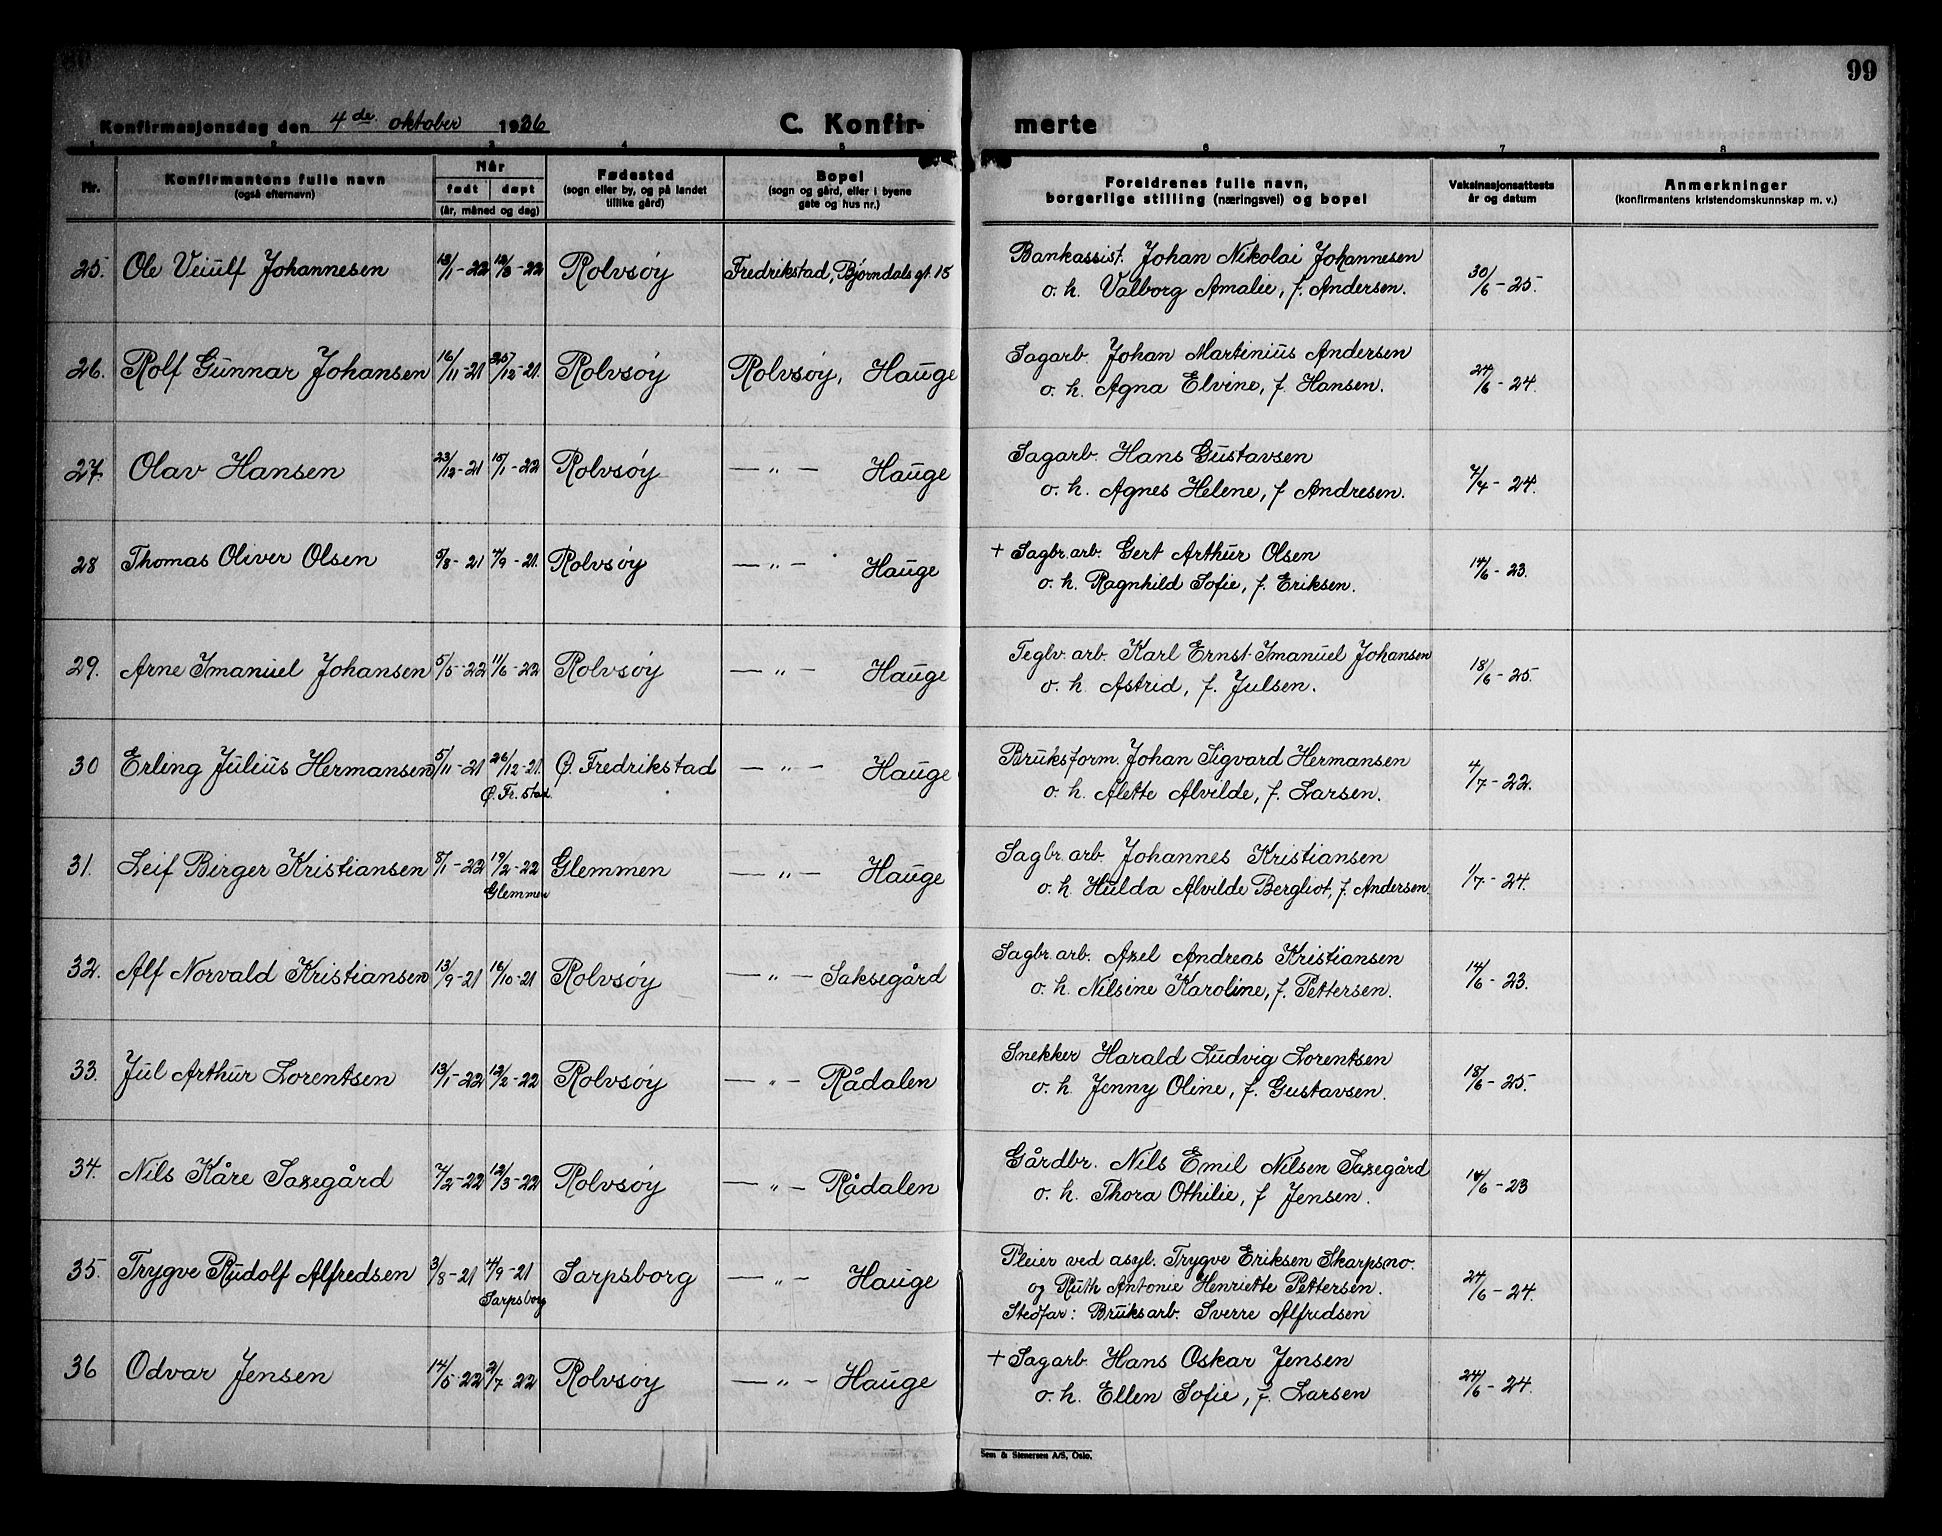 99
Konfirmasjonsdag den 4de oktober 1936
C. Konfir- merte
1 2 3 4 5 6 7 8
Nr.
Konfirmantens fulle navn
(også efternavn)
Når
født døpt
(år, måned og dag)
Fødested
(sogn eller by, og på landet
tillike gård)
Bopel
(sogn og gård, eller i byene
gate og hus nr.)
Foreldrenes fulle navn,
borgerlige stilling (næringsvei) og bopel
Vaksinasjonsattests
år og datum
Anmerkninger
(konfirmantens kristendomskunnskap m. v.)
25. Ole Veiulf Johannesen 13/1-22 12/3-22 Rolvsøy Fredrikstad, Bjørndals gt. 15 Bankassist. Johan Nikolai Johannesen 30/6-25.
o. h. Valborg Amalie, f. Andersen.
26. Rolf Gunnar Johansen 16/11-21 25/12-21. Rolvsøy Rolvsøy, Hauge Sagarb. Johan Martinius Andersen 24/6-24.
o. h. Agna Elvine, f. Hansen.
27. Olav Hansen 23/12-21 15/1-22 Rolvsøy — „ — Hauge Sagarb. Hans Gustavsen 7/4-24.
o. h. Agnes Helene, f Andresen.
28 Thomas Oliver Olsen 5/8-21 4/9-21. Rolvsøy — „ — Hauge + Sagbr. arb. Gert Arthur Olsen 14/6-23.
o. h. Ragnhild Sofie, f. Eriksen.
29. Arne Imanuel Johansen 5/5-22 11/6-22 Rolvsøy — „ Hauge Teglv. arb. Karl Ernst Imanuel Johansen 18/6-25.
o. h Astrid, f. Julsen.
30 Erling Julius Hermansen 5/11-21 26/12-21. Ø. Fredrikstad — „ — Hauge Bruksform. Johan Sigvard Hermansen 4/7-22.
Ø. Fr. stad. o. h. Alette Alvilde, f. Larsen.
31. Leif Birger Kristiansen 8/1-22 19/2-22 Glemmen — „ — Hauge Sagbr. arb. Johannes Kristiansen 1/7-24.
Glemmen o. h Hulda Alvilde Bergliot, f. Andersen.
32. Alf Norvald Kristiansen 13/9-21 16/10-21 Rolvsøy — „ — Saksegård Sagbr. arb. Axel Andreas Kristiansen 14/6-23.
o. h. Nilsine Karoline, f. Pettersen.
33. Jul Arthur Lorentsen 13/1-22 12/2-22 Rolvsøy — „ — Rådalen Snekker Harald Ludvig Lorentsen 18/6-25.
o. h. Jenny Oline, f. Gustavsen.
34. Nils Kåre Saxegård 7/2-22 12/3-22 Rolvsøy — „ — Rådalen Gårdbr. Nils Emil Nilsen Saxegård 14/6-23
o. h. Thora Othilie, f Jensen.
35. Trygve Rudolf Alfredsen 3/8-21 4/9-21 Sarpsborg — „ — Hauge Pleier ved asyl. Trygve Eriksen Skarpsno. 24/6-24.
Sarpsborg og Ruth Antonie Henriette Pettersen.
Stedfar: Bruksarb. Sverre Alfredsen
36 Odvar Jensen 14/5-22 2/7 22 Rolvsøy — „ — Hauge + Sagarb. Hans Oskar Jensen 24/6-24.
o. h. Ellen Sofie, f. Larsen
Sem & Stenersen A/S, Oslo.